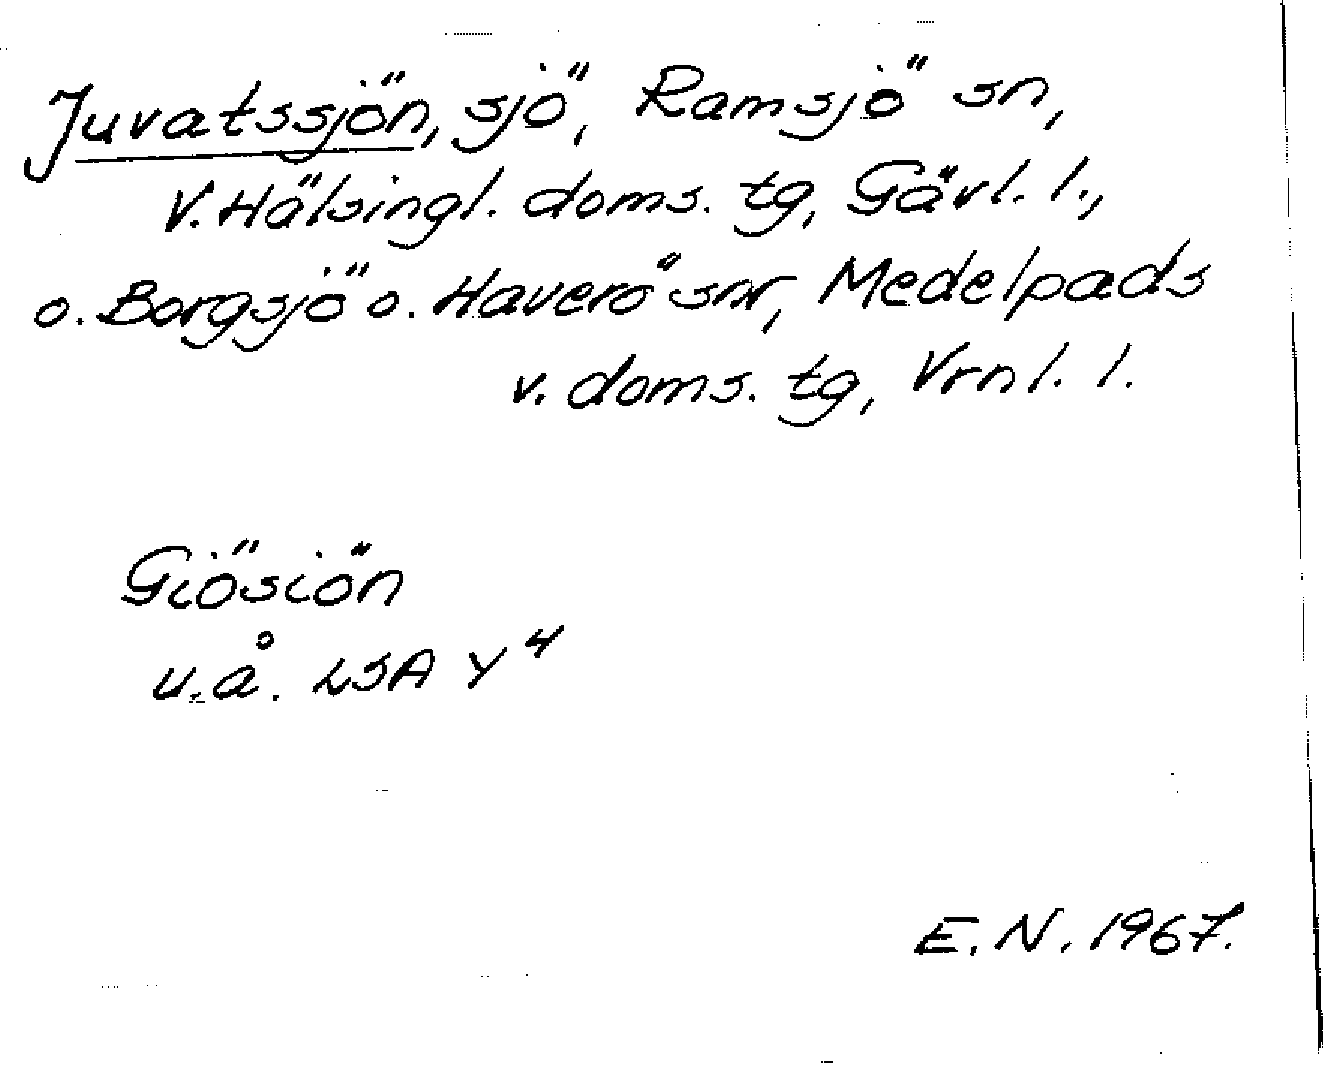 Juvatssjön, sjö, Ramsjö sn,
V. Hälsingl. doms. tg, Gävl. l.,
o. Borgsjö o. Haverö snr, Medelpads
v. doms. tg, Vrnl. l.
Giösiön
u.å. LSA Y4
E.N. 1967.